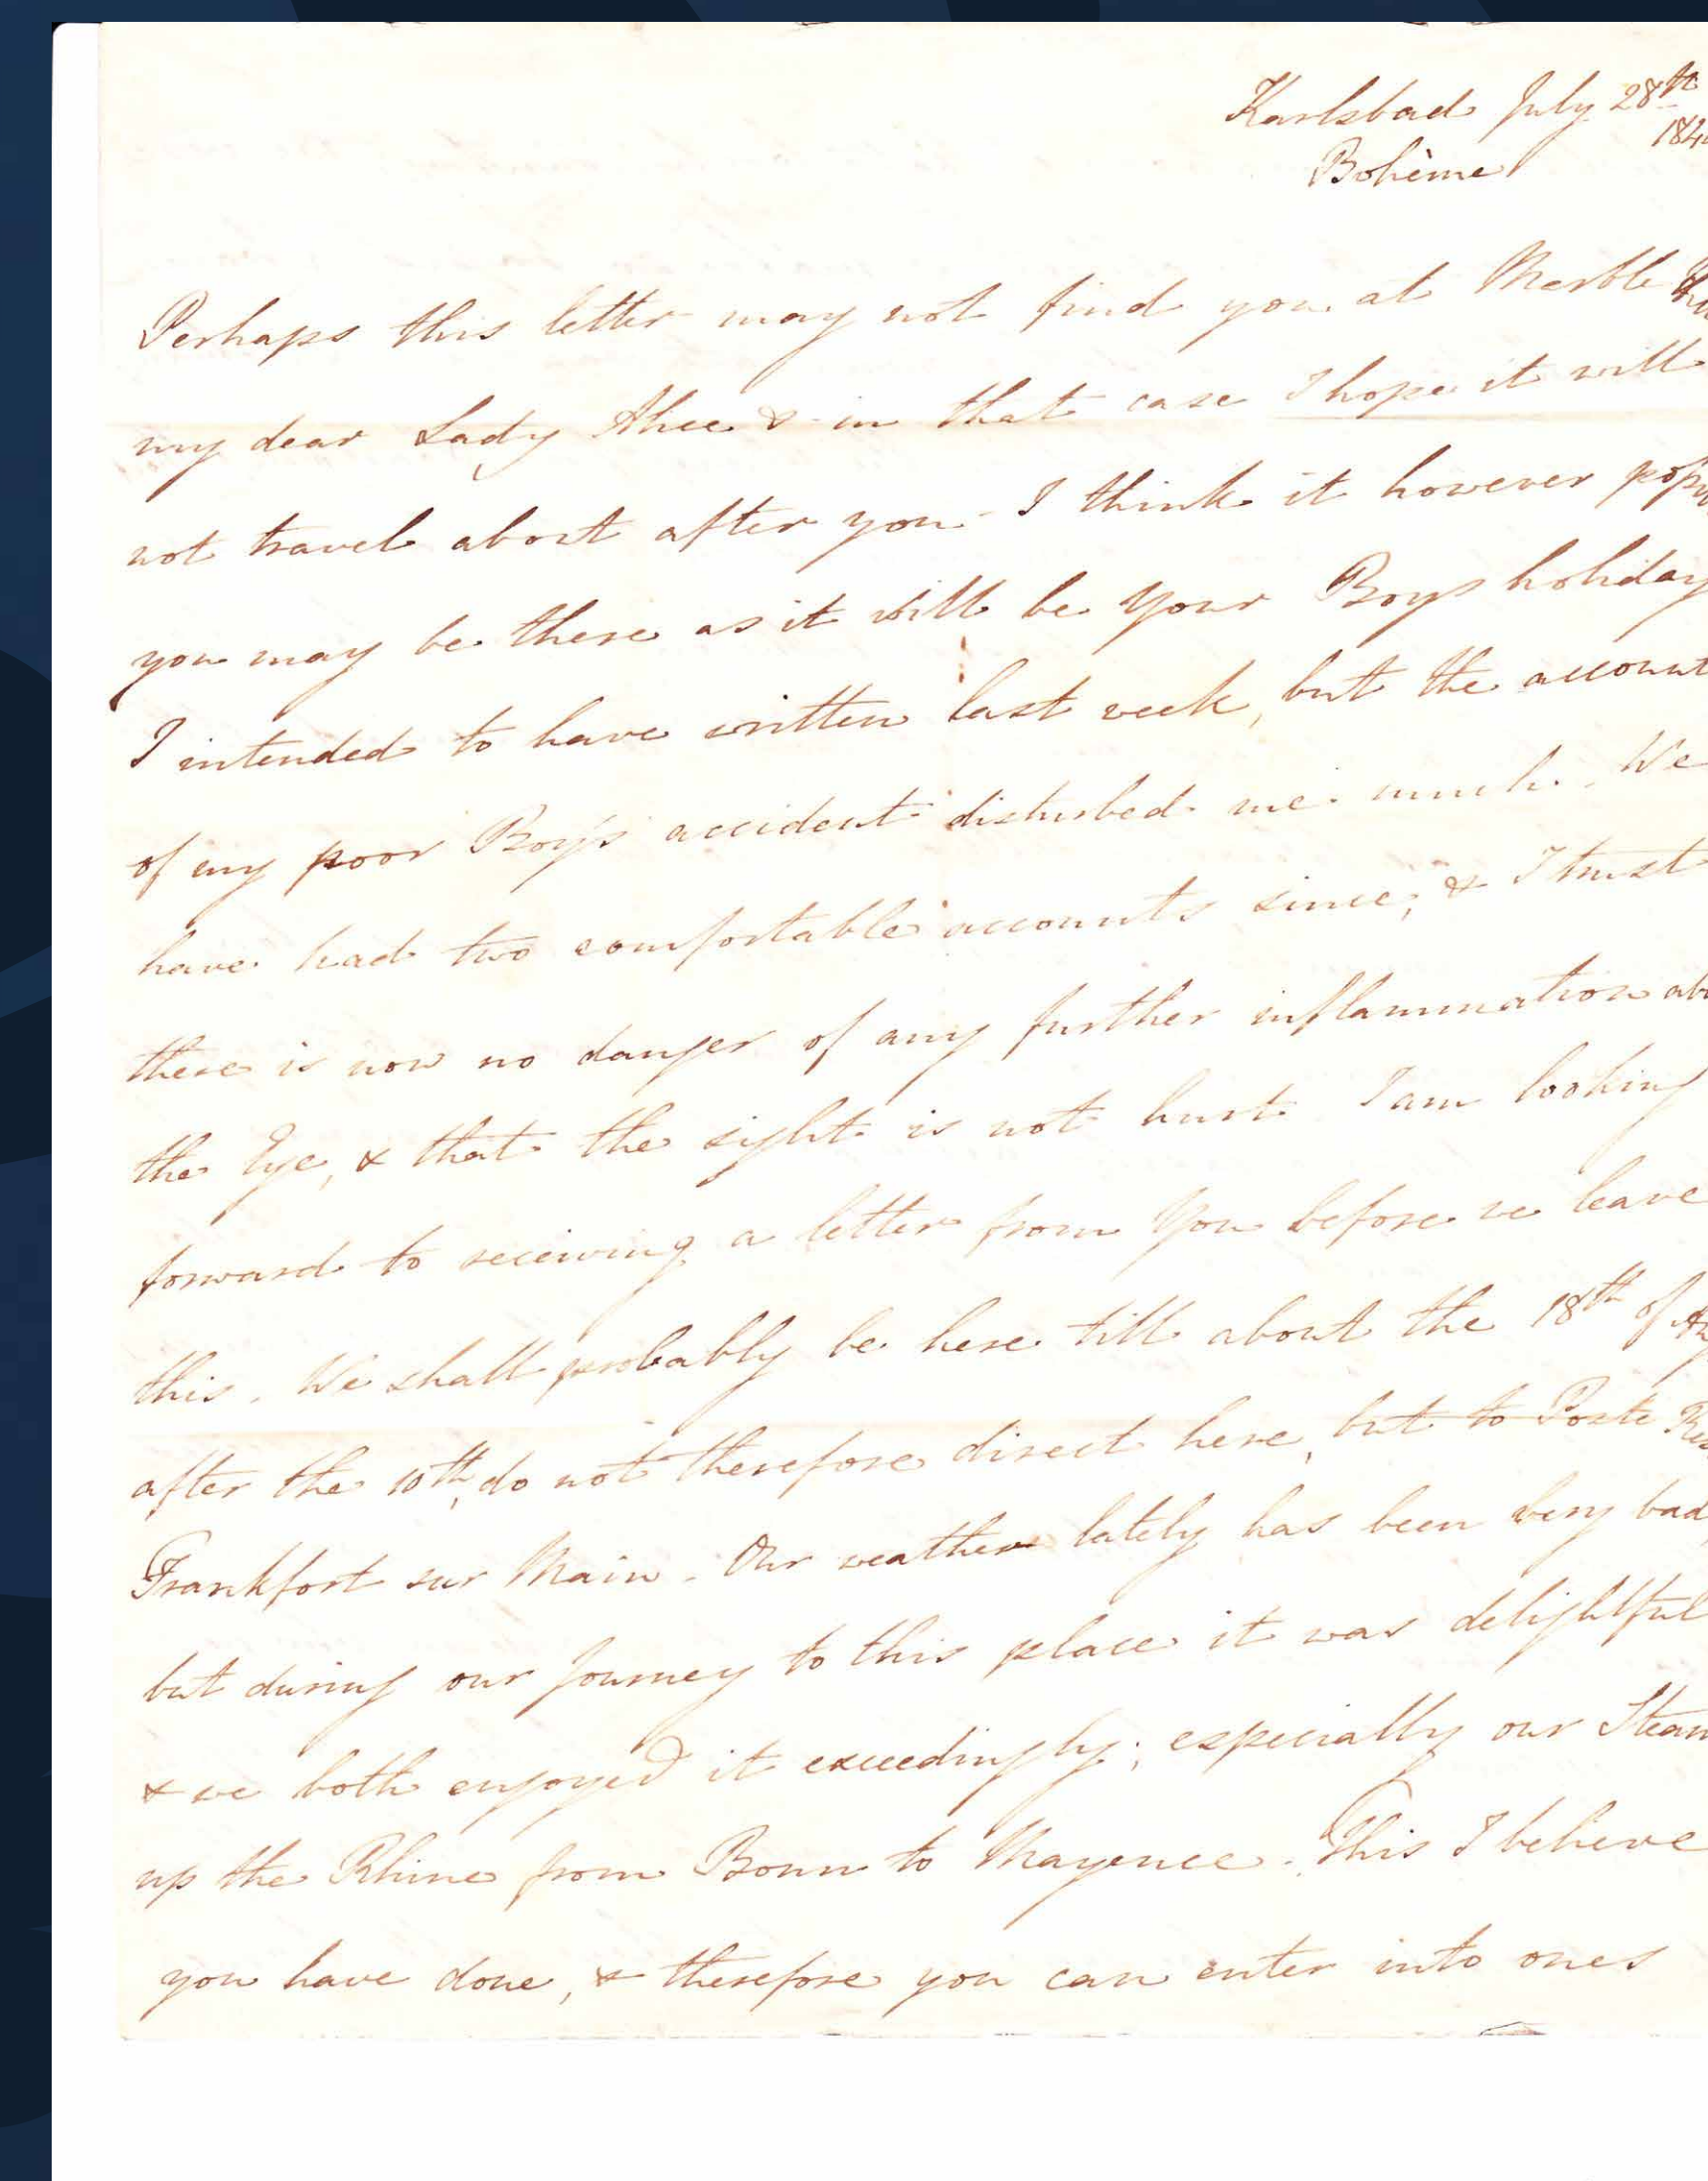 Karlsbad July 28th
184
Bohème
Perhaps this letter may not find you at Marble
my dear Lady Alice & in that case I hope it will
not travel about after you - I think it however
you may be there as it will be your Boys holiday
I intended to have written last week, but the account
of my poor Boy's accident disturbed me much. We
have had two comfortable accounts since, & I trust
there is now no danger of any further inflammation ab
the Eye, & that the sight is not hurt. I am looking
forward to receiving a letter from you before we leave
this. We shall probably be here till about the 18th of
after the 10th, do not therefore direct here, but to Poste
Frankfort sur Main. Our weather lately has been very bad,
but during our Journey to this place it was delightful
& we both enjoyed it exceedingly; especially our Steam
up the Rhine from Bonn to Mayence. This I believe
you have done, & therefore you can enter into ones